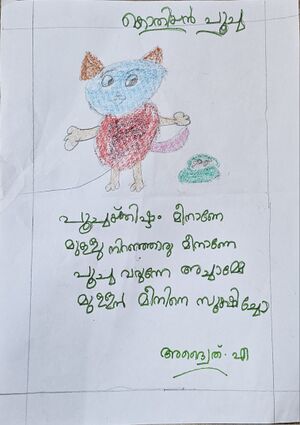 കൊതിയൻ പൂച്ച
പൂച്ചക്കിഷ്ടം മീനാണേ
മുള്ളു നിറഞ്ഞൊരു മീനാണേ
പൂച്ച വരുന്നേ അച്ചാമ്മേ
മുള്ളൻ മീനിനെ സൂക്ഷിച്ചോ
എ